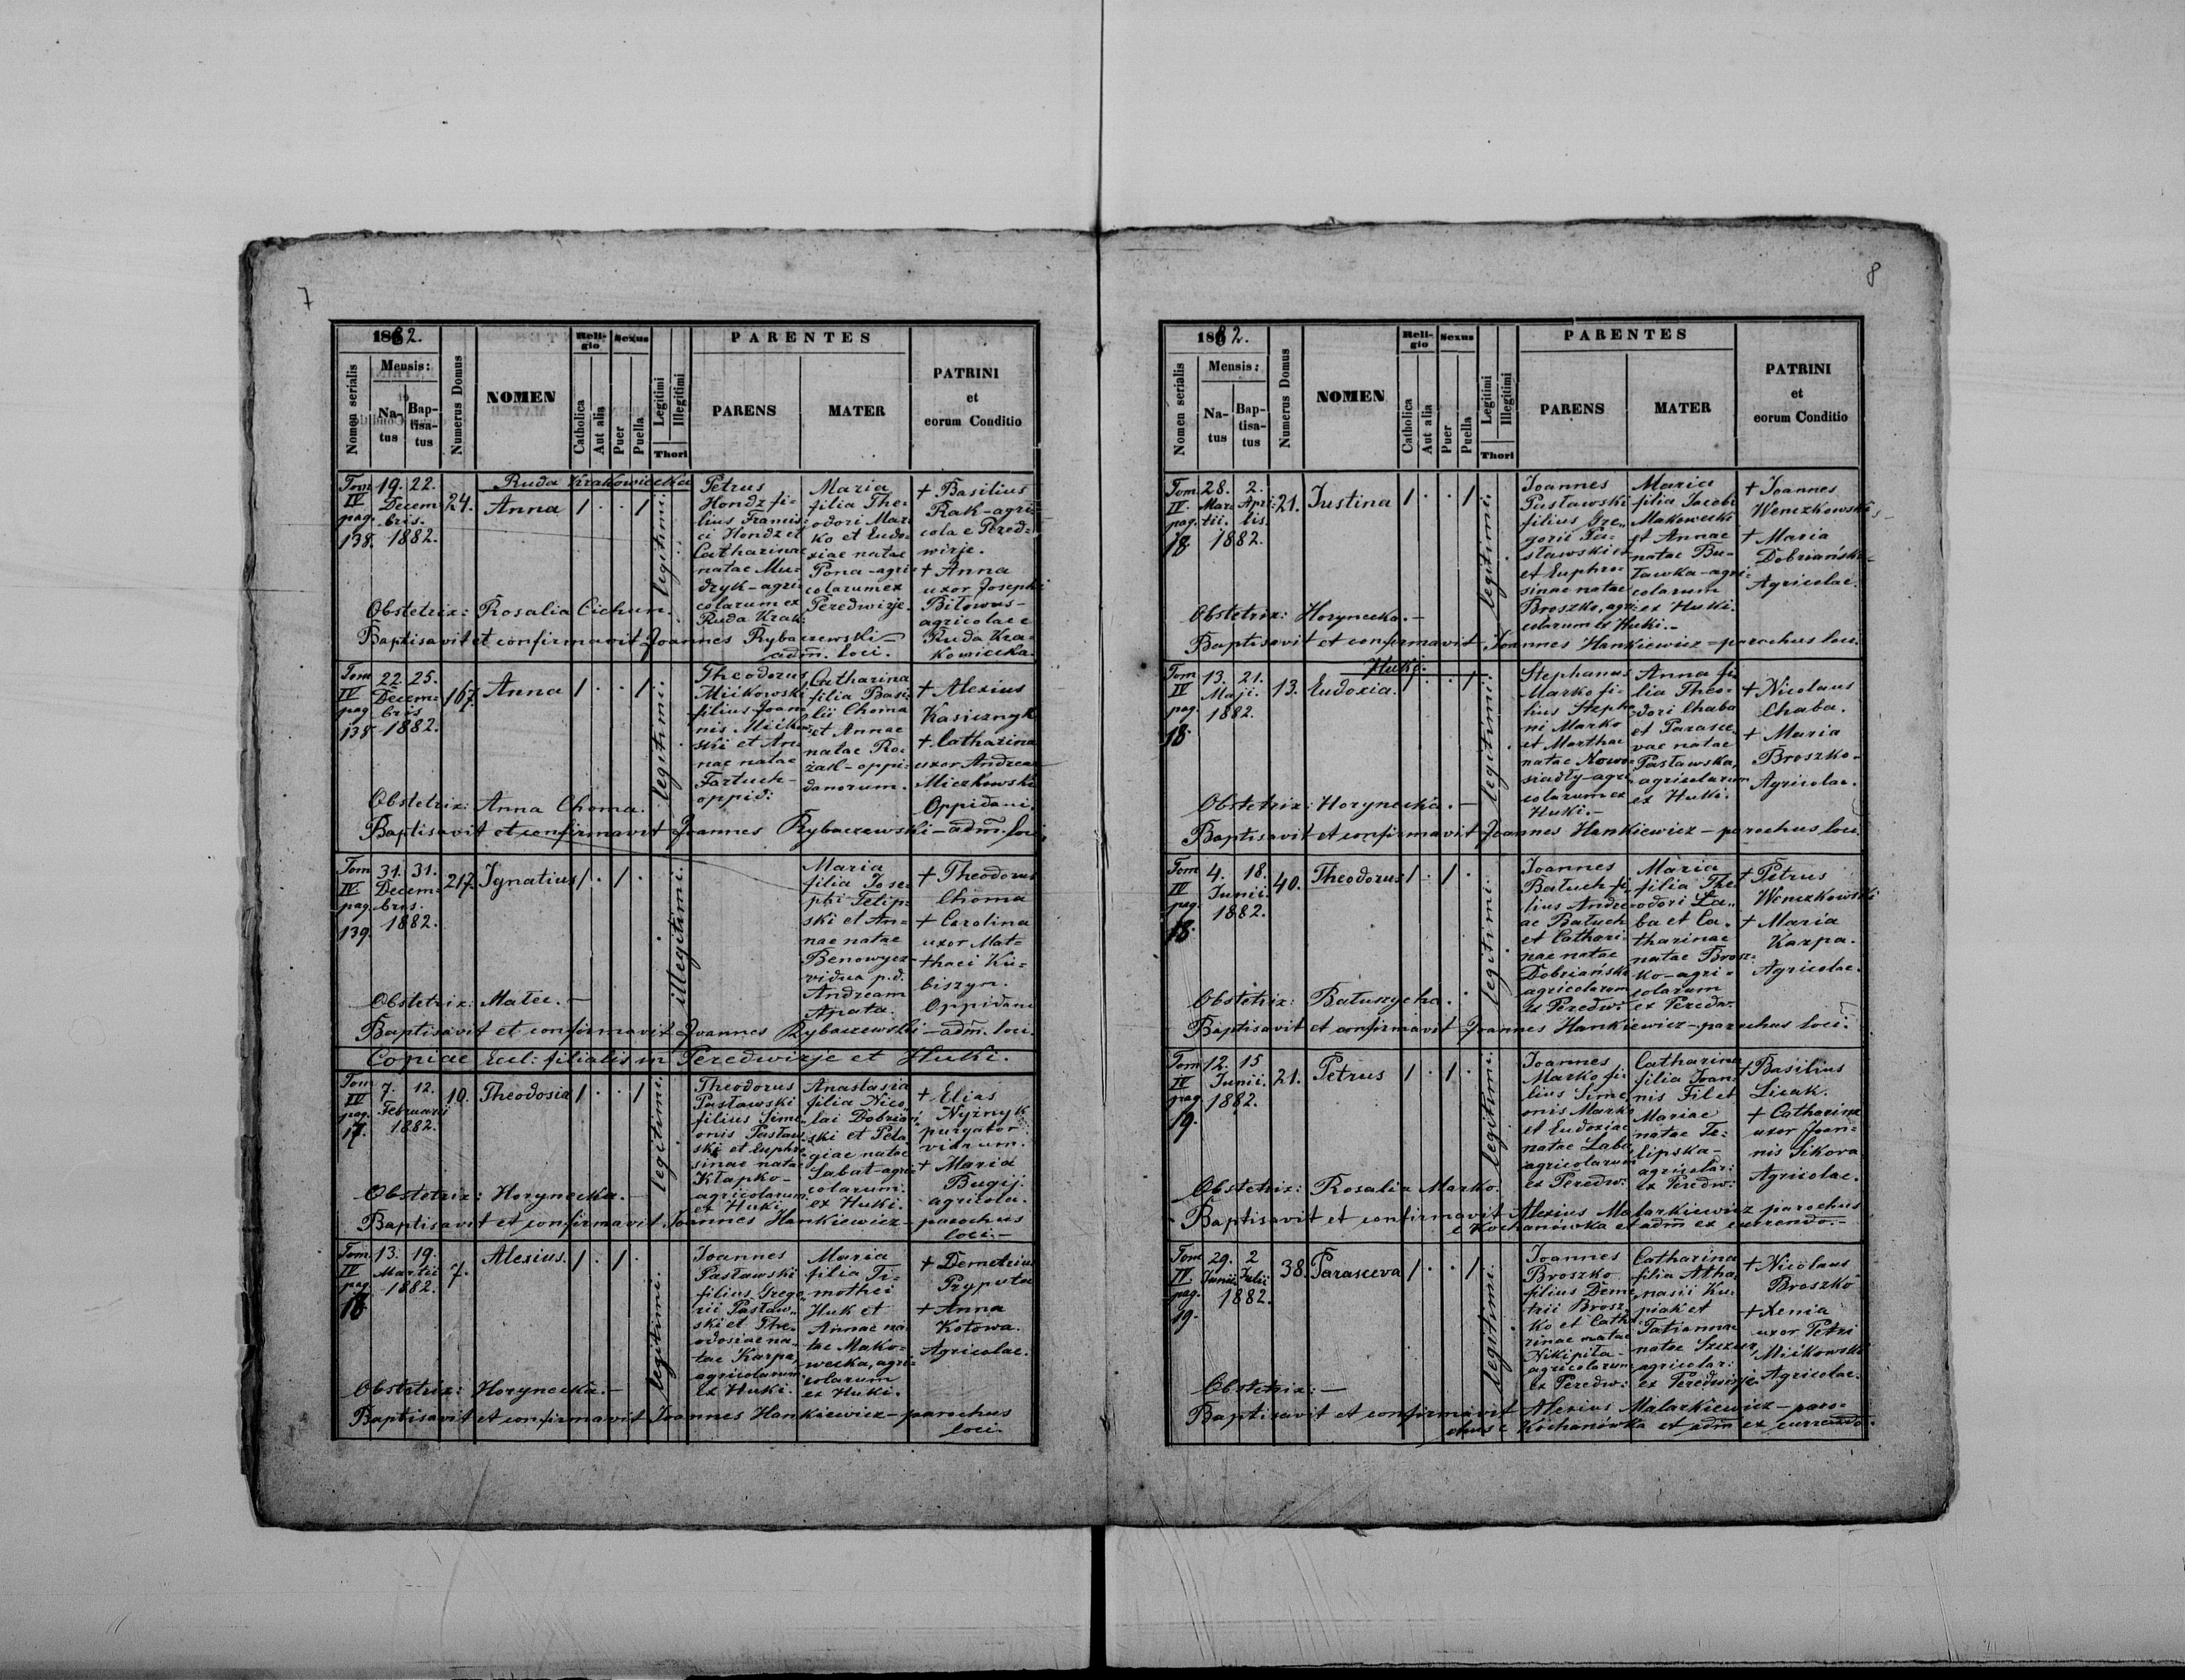 7
1882.
Mensis:
Nomen serialis
Na-
tus
Bap-
tisa-
tus
Numerus Domus
NOMEN
Reli-
gio
Catholica
Aut alia
Sexus
Puer
Puella
Legitimi
Illegitimi
Thori
PARENTES
PARENS
MATER
PATRINI
et
eorum Conditio
Tom
IV
pag.
138.
19. 22.
Decem-
bris.
1882.
24.
Ruda Krakowiecka
Anna
legitimi.
Petrus
Hondz fi-
lius Francis-
ci Hondz et
Catharinae
natae Mu-
dryk - agri-
colarum ex
Ruda Krak:
Maria
filia The-
odori Mar-
ko et Eudo-
xiae natae
Pona - agri-
colarum ex
Peredwirje.
+ Basilius
Rak - agri-
cola e Pered-
wirje.
+ Anna
uxor Josephi
Biłowus -
agricolae e
Ruda Kra-
kowiecka.
Obstetrix: Rosalia Cichun.
Baptisavit et confirmavit Joannes Rybaczewski -
adm. loci.
Tom
IV
pag.
138.
22. 25.
Decem-
bris
1882.
167.
Anna
legitimi.
Theodorus
Mićkowski
filius Joan-
nis Mićkow-
ski et An-
nae natae
Fartuch -
oppid:
Catharina
filia Basi-
lii Choma
et Annae
natae Ro-
żak - oppi-
danorum.
+ Alexius
Kasicznyk
+ Catharina
uxor Andreae
Miczkowski
Oppidani.
Obstetrix: Anna Choma.
Baptisavit et confirmavit Joannes Rybaczewski - adm. loci.
Tom
IV.
pag.
139.
31. 31.
Decem-
bris.
1882.
217.
Ignatius
illegitimi.
Maria
filia Jose-
phi Telip-
ski et An-
nae natae
Benowycz -
vidua p.d.
Andream
Apata.
+ Theodorus
Choma
+ Carolina
uxor Mat-
thaei Ku-
biszyn.
Oppidani
Obstetrix: Matei. -
Baptisavit et confirmavit Joannes Rybaczewski - adm. loci.
Copiae Eccl: filialis in Peredwirje et Huki.
Tom
IV
pag.
17.
7. 12.
Februarii
1882.
10.
Theodosia
legitimi.
Theodorus
Pasławski
filius Sime-
onis Pasław-
ski et Euphro-
sinae natae
Kłapko -
agricolarum
ex Huki.
Anastasia
filia Nico-
lai Dobriań-
ski et Pela-
giae natae
Sabat - agri-
colarum.
ex Huki.
+ Elias
Nyżnyk
purgator
vitrum.
+ Maria
Bugij.
agricola.
Obstetrix: Horynecka. -
Baptisavit et confirmavit Joannes Hankiewicz - parochus
loci. -
Tom.
IV
pag.
18
13. 19.
Martii
1882.
7.
Alexius.
legitimi.
Joannes
Pasławski
filius Grego-
rii Pasław-
ski et The-
odosiae na-
tae Karpa,
agricolarum
ex Huki.
Maria
filia Ti-
mothei
Huk et
Annae na-
tae Mako-
wecka, agri-
colarum
ex Huki.
+ Demetrius
Pryputa
+ Anna
Kotowa.
Agricolae.
Obstetrix: Horynecka. -
Baptisavit et confirmavit Joannes Hankiewicz - parochus
loci.
8
1882.
Mensis:
Nomen serialis
Na-
tus
Bap-
tisa-
tus
Numerus Domus
NOMEN
Reli-
gio
Catholica
Aut alia
Sexus
Puer
Puella
Legitimi
Illegitimi
Thori
PARENTES
PARENS
MATER
PATRINI
et
eorum Conditio
Tom.
IV.
pag.
18
28. 2.
Mar- Apri-
tii. lis.
1882.
21.
Justina
legitimi.
Joannes
Pasławski
filius Gre-
gorii Pa-
sławski et
et Euphro-
sinae natae
Broszko, agri-
colarum ex Huki. -
Maria
filia Jacobi
Makowecki
et Annae
natae Bu-
ławka - agri-
colarum
ex Huki.
+ Joannes
Wenczkowski
+ Maria
Dobriańska -
Agricolae.
Obstetrix: Horynecka. -
Baptisavit et confirmavit Joannes Hankiewicz - parochus loci.
Tom
IV
pag.
18
13. 21.
Maji.
1882.
13.
Huki.
Eudoxia.
legitimi.
Stephanus
Marko fi-
lius Stepha-
ni Marko
et Marthae
natae Nowo-
siadły - agri-
colarum ex
Huki. -
Anna fi-
lia Theo-
dori Chaba
et Parasce-
vae natae
Pasławska,
agricolarum
ex Huki.
+ Nicolaus
Chaba.
+ Maria
Broszko -
Agricolae.
Obstetrix: Horynecka. -
Baptisavit et confirmavit Joannes Hankiewicz - parochus loci.
Tom
IV
pag.
18.
4. 18.
Junii.
1882.
40.
Theodorus
legitimi.
Joannes
Batuch fi-
lius Andre-
ae Batuch
et Cathari-
nae natae
Dobriański
agricolarum
ex Peredw:
Maria
filia The-
odori La-
ba et Ca-
tharinae
natae Brosz-
ko - agri-
colarum
ex Peredw.
+ Petrus
Wenczkowski
+ Maria
Karpa.
Agricolae.
Obstetrix: Batuszycha.
Baptisavit et confirmavit Joannes Hankiewicz - parochus loci.
Tom
IV
pag
19.
12. 15
Junii.
1882.
21.
Petrus
legitimi.
Joannes
Marko fi-
lius Sime-
onis Marko
et Eudoxiae
natae Laba
agricolarum
ex Peredw:
Catharina
filia Joan-
nis Fil et
Mariae
natae Te-
lipska -
agricolar:
ex Peredw:
+ Basilius
Licak.
+ Catharina
uxor Joan-
nis Sikora
Agricolae.
Obstetrix: Rosalia Marko.
Baptisavit et confirmavit Alexius Malarkiewicz parochus
e Kochanówka et adm ex currendo. -
Tom
IV.
pag.
19.
29. 2
Junii Julii
1882.
38.
Parasceva
legitimi.
Joannes
Broszko
filius Deme-
trii Brosz-
ko et Catha-
rinae natae
Nikipiła -
agricolarum
ex Peredw:
Catharina
filia Atha-
nasii Ku-
piak et
Tatiannae
natae Szczur,
agricolar:
ex Peredwirje.
+ Nicolaus
Broszko
+ Xenia
uxor Petri
Mićkowski
Agricolae.
Obstetrix: -
Baptisavit et confirmavit Alexius Malarkiewicz - paro-
chus e Kochanówka et adm ex currendo.